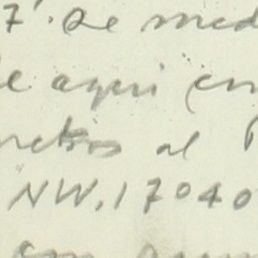 7'. Se med
e aquí en
metros al
NW. 17°40